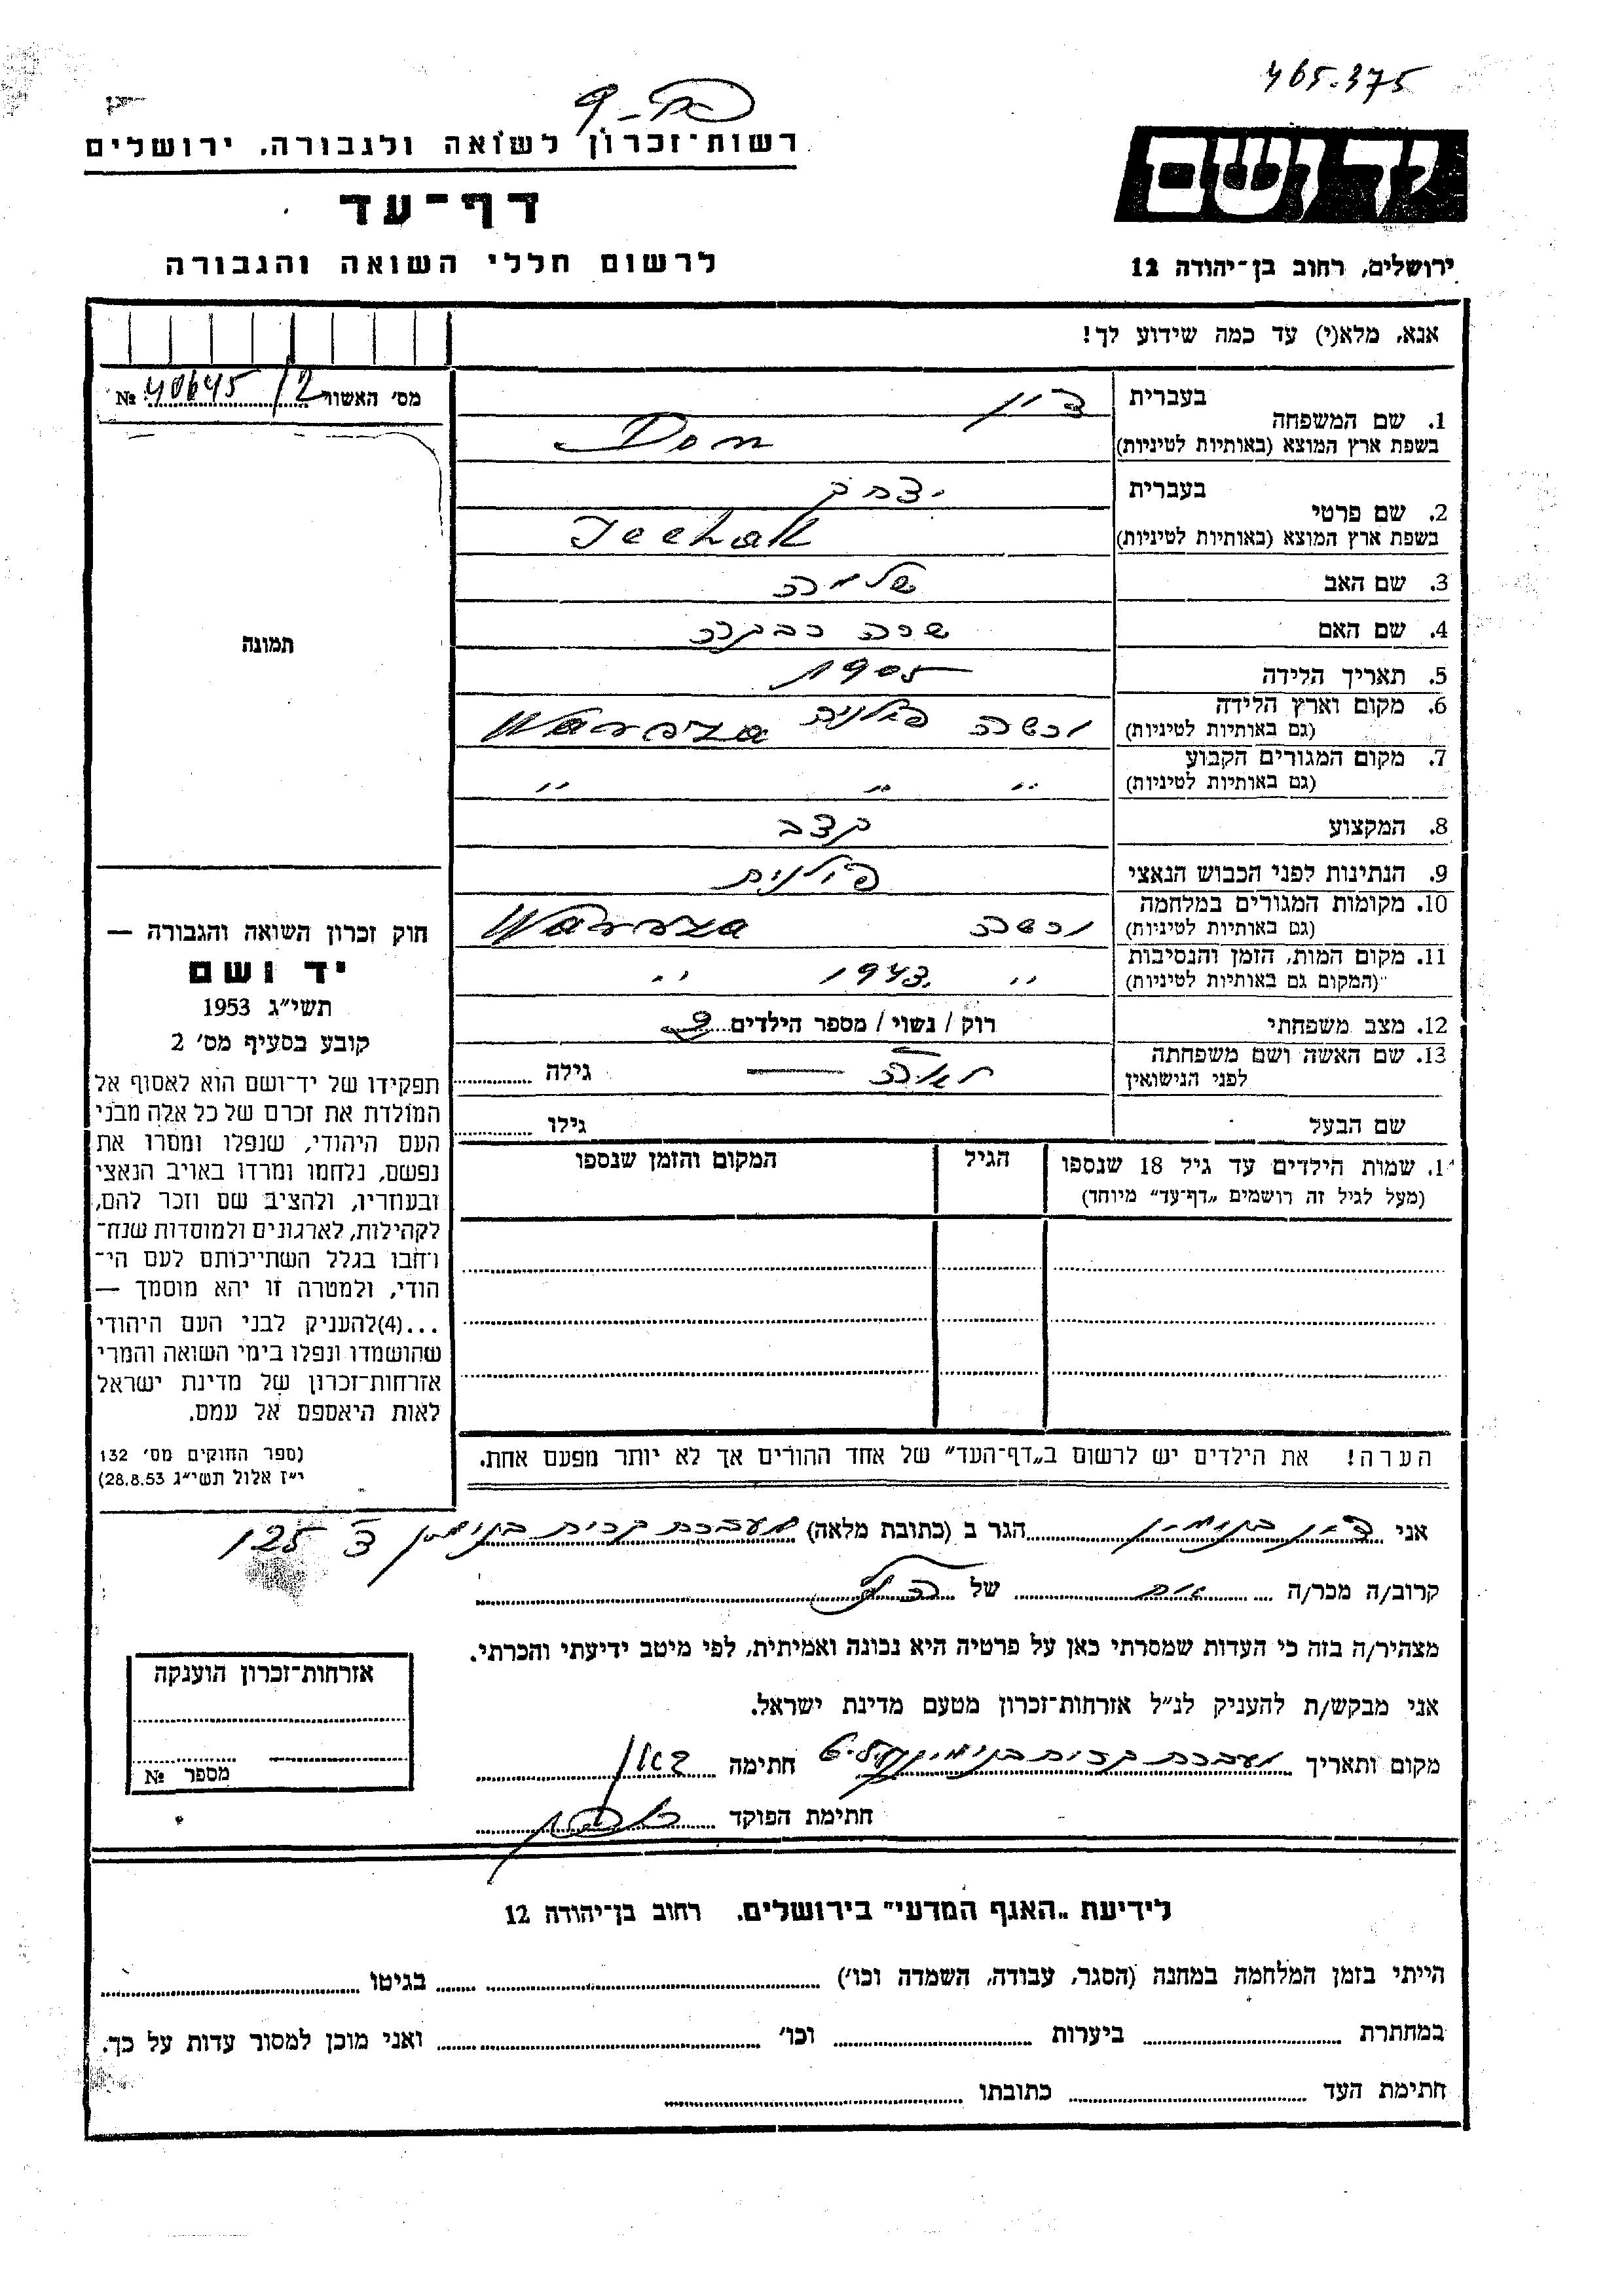 465.375
רשות־זכרון לשואה ולגבורה, ירושלים
יד ושם
דף־עד
לרשום חללי השואה והגבורה
ירושלים, רחוב בן־יהודה 12
אנא, מלא(י) עד כמה שידוע לך!
מס׳ האשור № 40645/2
1. שם המשפחה
בעברית דון
בשפת ארץ המוצא (באותיות לטיניות) Don
2. שם פרטי
בעברית יצחק
בשפת ארץ המוצא (באותיות לטיניות) Icchak
3. שם האב שלמה
4. שם האם שרה רבקה
5. תאריך הלידה 1905
6. מקום וארץ הלידה
(גם באותיות לטיניות) ורשה פולניה Warsza
7. מקום המגורים הקבוע
(גם באותיות לטיניות) " " "
8. המקצוע קצב
9. הנתינות לפני הכבוש הנאצי פולנית
10. מקומות המגורים במלחמה
(גם באותיות לטיניות) ורשה Warsza
11. מקום המות, הזמן והנסיבות
(המקום גם באותיות לטיניות) " 1943. "
12. מצב משפחתי רוק / נשוי / מספר הילדים
13. שם האשה ושם משפחתה
לפני הנישואין גילה
שם הבעל גילו
תמונה
חוק זכרון השואה והגבורה —
יד ושם
תשי״ג 1953
קובע בסעיף מס׳ 2
תפקידו של יד־ושם הוא לאסוף אל
המולדת את זכרם של כל אלה מבני
העם היהודי, שנפלו ומסרו את
נפשם, נלחמו ומרדו באויב הנאצי
ובעוזריו, ולהציב שם וזכר להם,
לקהילות, לארגונים ולמוסדות שנח־
רבו בגלל השתייכותם לעם הי־
הודי, ולמטרה זו יהא מוסמך —
...(4) להעניק לבני העם היהודי
שהושמדו ונפלו בימי השואה והמרי
אזרחות־זכרון של מדינת ישראל
לאות היאספם אל עמם.
(ספר החוקים מס׳ 132
י״ז אלול תשי״ג 28.8.53)
1. שמות הילדים עד גיל 18 שנספו הגיל המקום והזמן שנספו
(מעל לגיל זה רושמים „דף־עד״ מיוחד)
הערה! את הילדים יש לרשום ב„דף־העד״ של אחד ההורים אך לא יותר מפעם אחת.
אני דון בנימין הגר ב (כתובת מלאה) מעברת קרית בנימין צ 125
קרוב/ה מכר/ה אח של הנ״ל
מצהיר/ה בזה כי העדות שמסרתי כאן על פרטיה היא נכונה ואמיתית, לפי מיטב ידיעתי והכרתי.
אני מבקש/ת להעניק לנ״ל אזרחות־זכרון מטעם מדינת ישראל.
מקום ותאריך מעברת קרית בנימין חתימה
חתימת הפוקד
אזרחות־זכרון הוענקה
מספר №
לידיעת „האגף המדעי״ בירושלים, רחוב בן־יהודה 12
הייתי בזמן המלחמה במחנה (הסגר, עבודה, השמדה וכו׳) בגיטו
במחתרת ביערות וכו׳ ואני מוכן למסור עדות על כך.
חתימת העד כתובתו